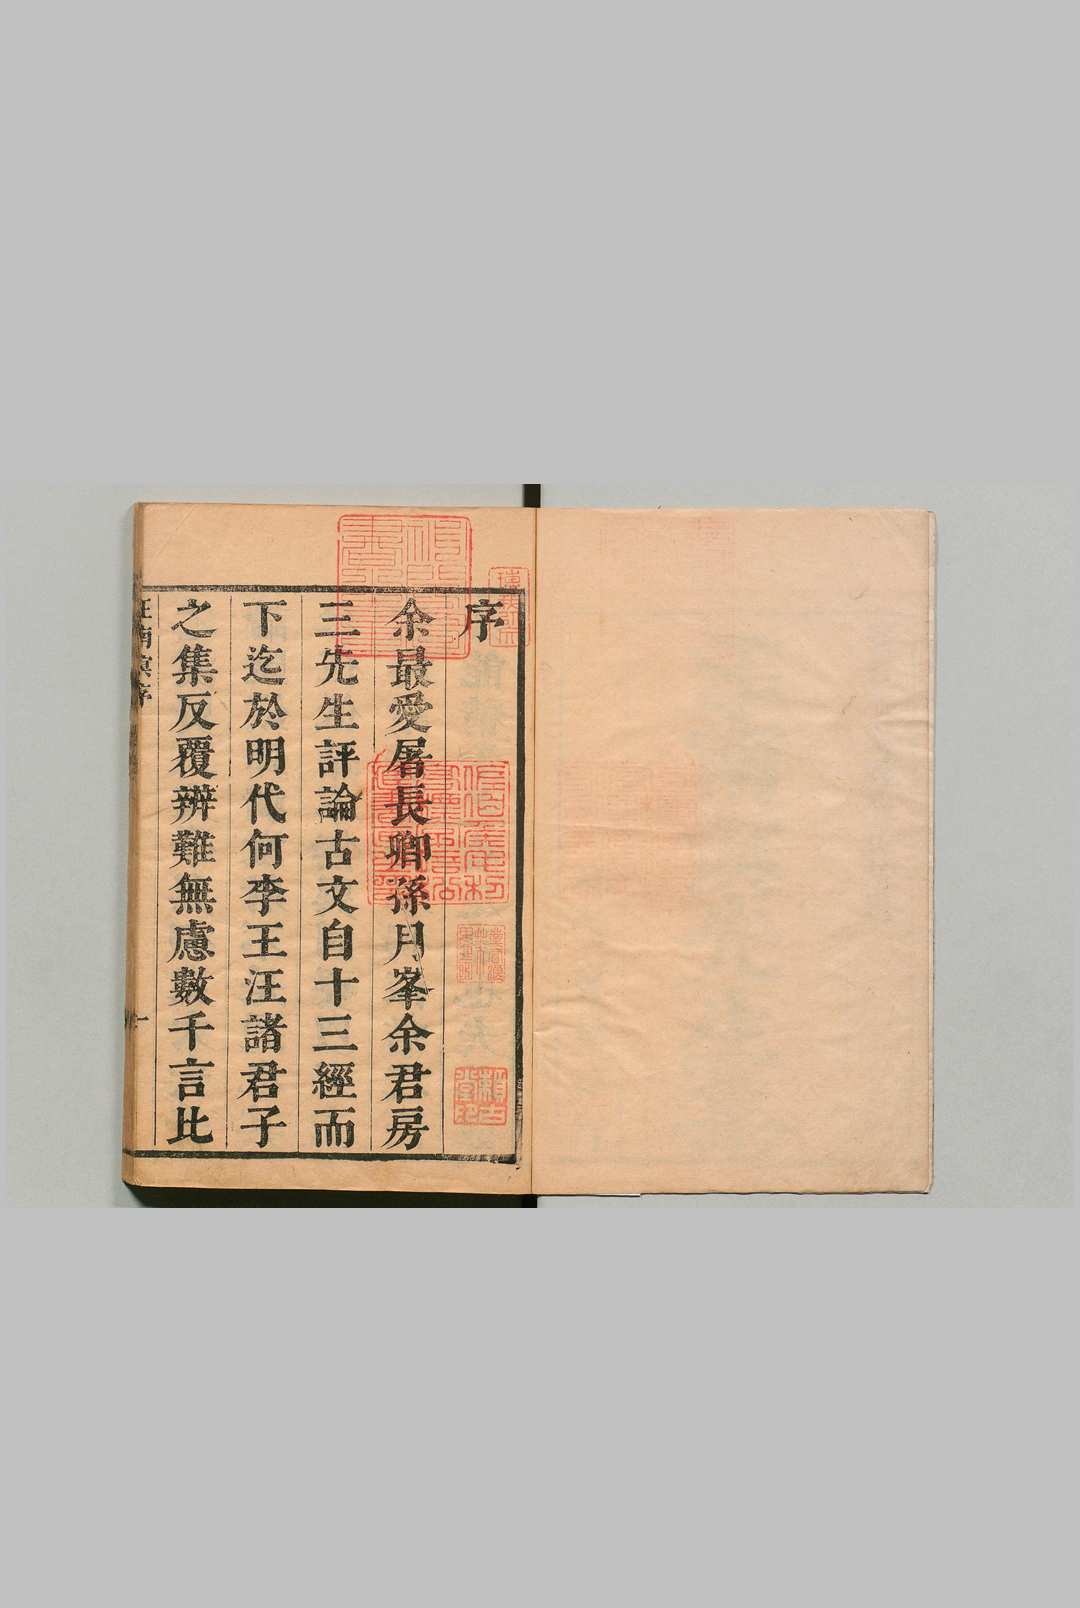 序
余最愛屠長卿孫月峯余君房
三先生評論古文自十三經而
下迄於明代何李王汪諸君子
之集反覆辨難無慮數千言比
汪南溟序
一